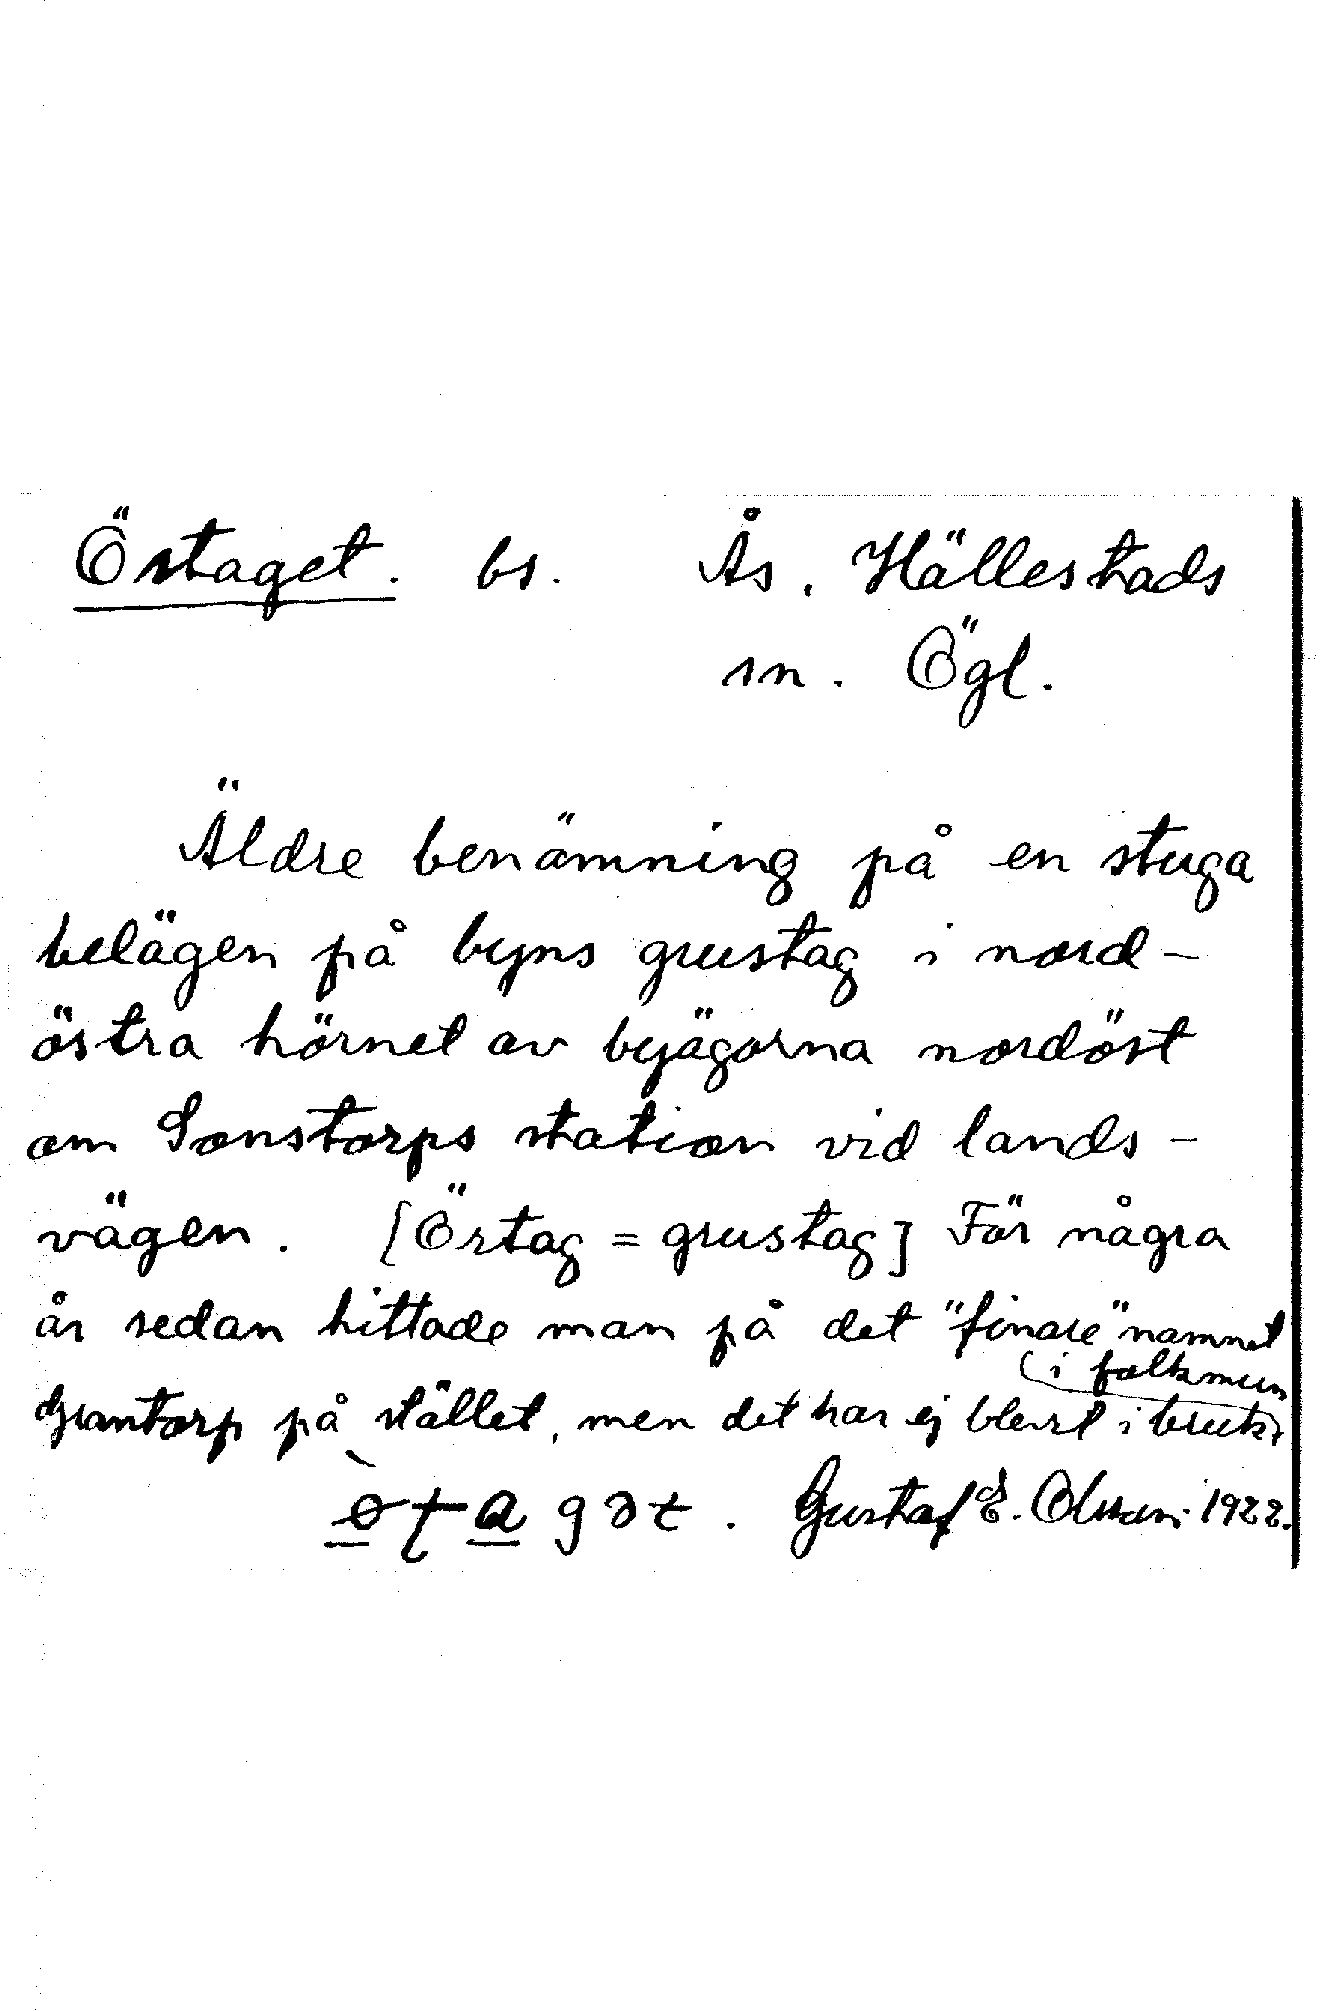 Östaget. bs. Ås, Hällestads
sn. Ögl.
Äldre benämning på en stuga
belägen på byns grustag i nord-
östra hörnet av byägorna nordöst
om Sonstorps station vid lands-
vägen. [Örtag = grustag] För några
år sedan hittade man på det "finare" namnet
i folkmun
Grantorp på stället, men det har ej blevet i bruk.
Gustaf E. Olsson. 1922.